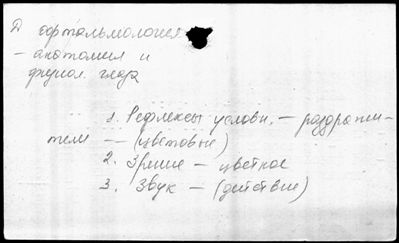 Д офтальмология
– анатомия и
физиол. глаза
1. Рефлексы условн. – раздражи-
тели — (цветовые)
2. Зрение – цветное
3. Звук – (действие)